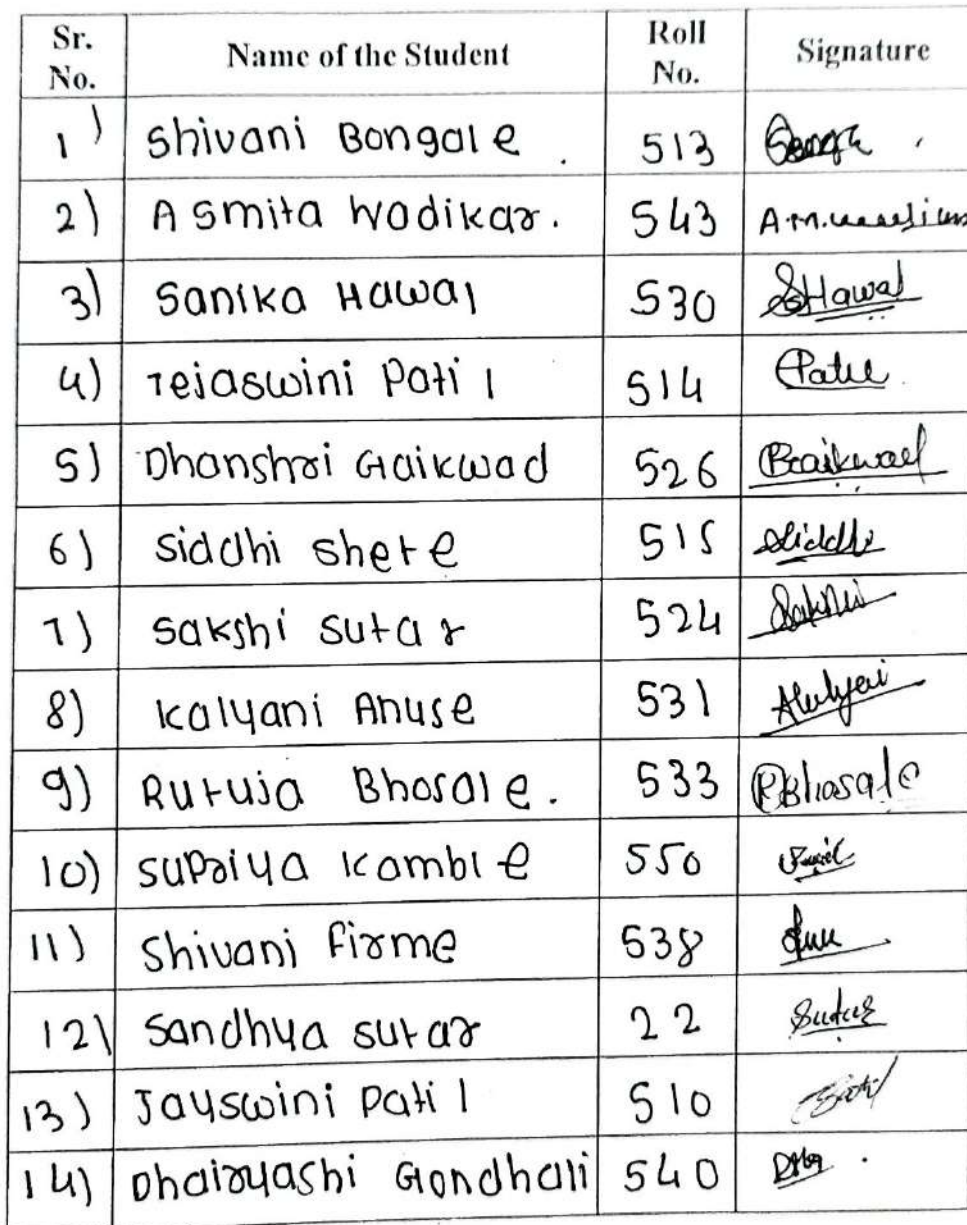 Sr. No. Name of the Student Roll No. Signature
1) Shivani Bongale. 513
2) Asmita Wadikar. 543
3) Sanika Hawal 530 SHawal
4) Tejaswini Patil 514 Patil
5) Dhanshri Gaikwad 526 Gaikwad
6) Siddhi Shete 515 Siddhi
7) Sakshi Sutar 524 Sakshi
8) Kalyani Anuse 531
9) Rutuja Bhosale. 533 RBhosale
10) Supriya Kamble 550
11) Shivani Firme 538
12) Sandhya Sutar 22 Sutar
13) Jayswini Patil 510
14) Dhairyashi Gondhali 540